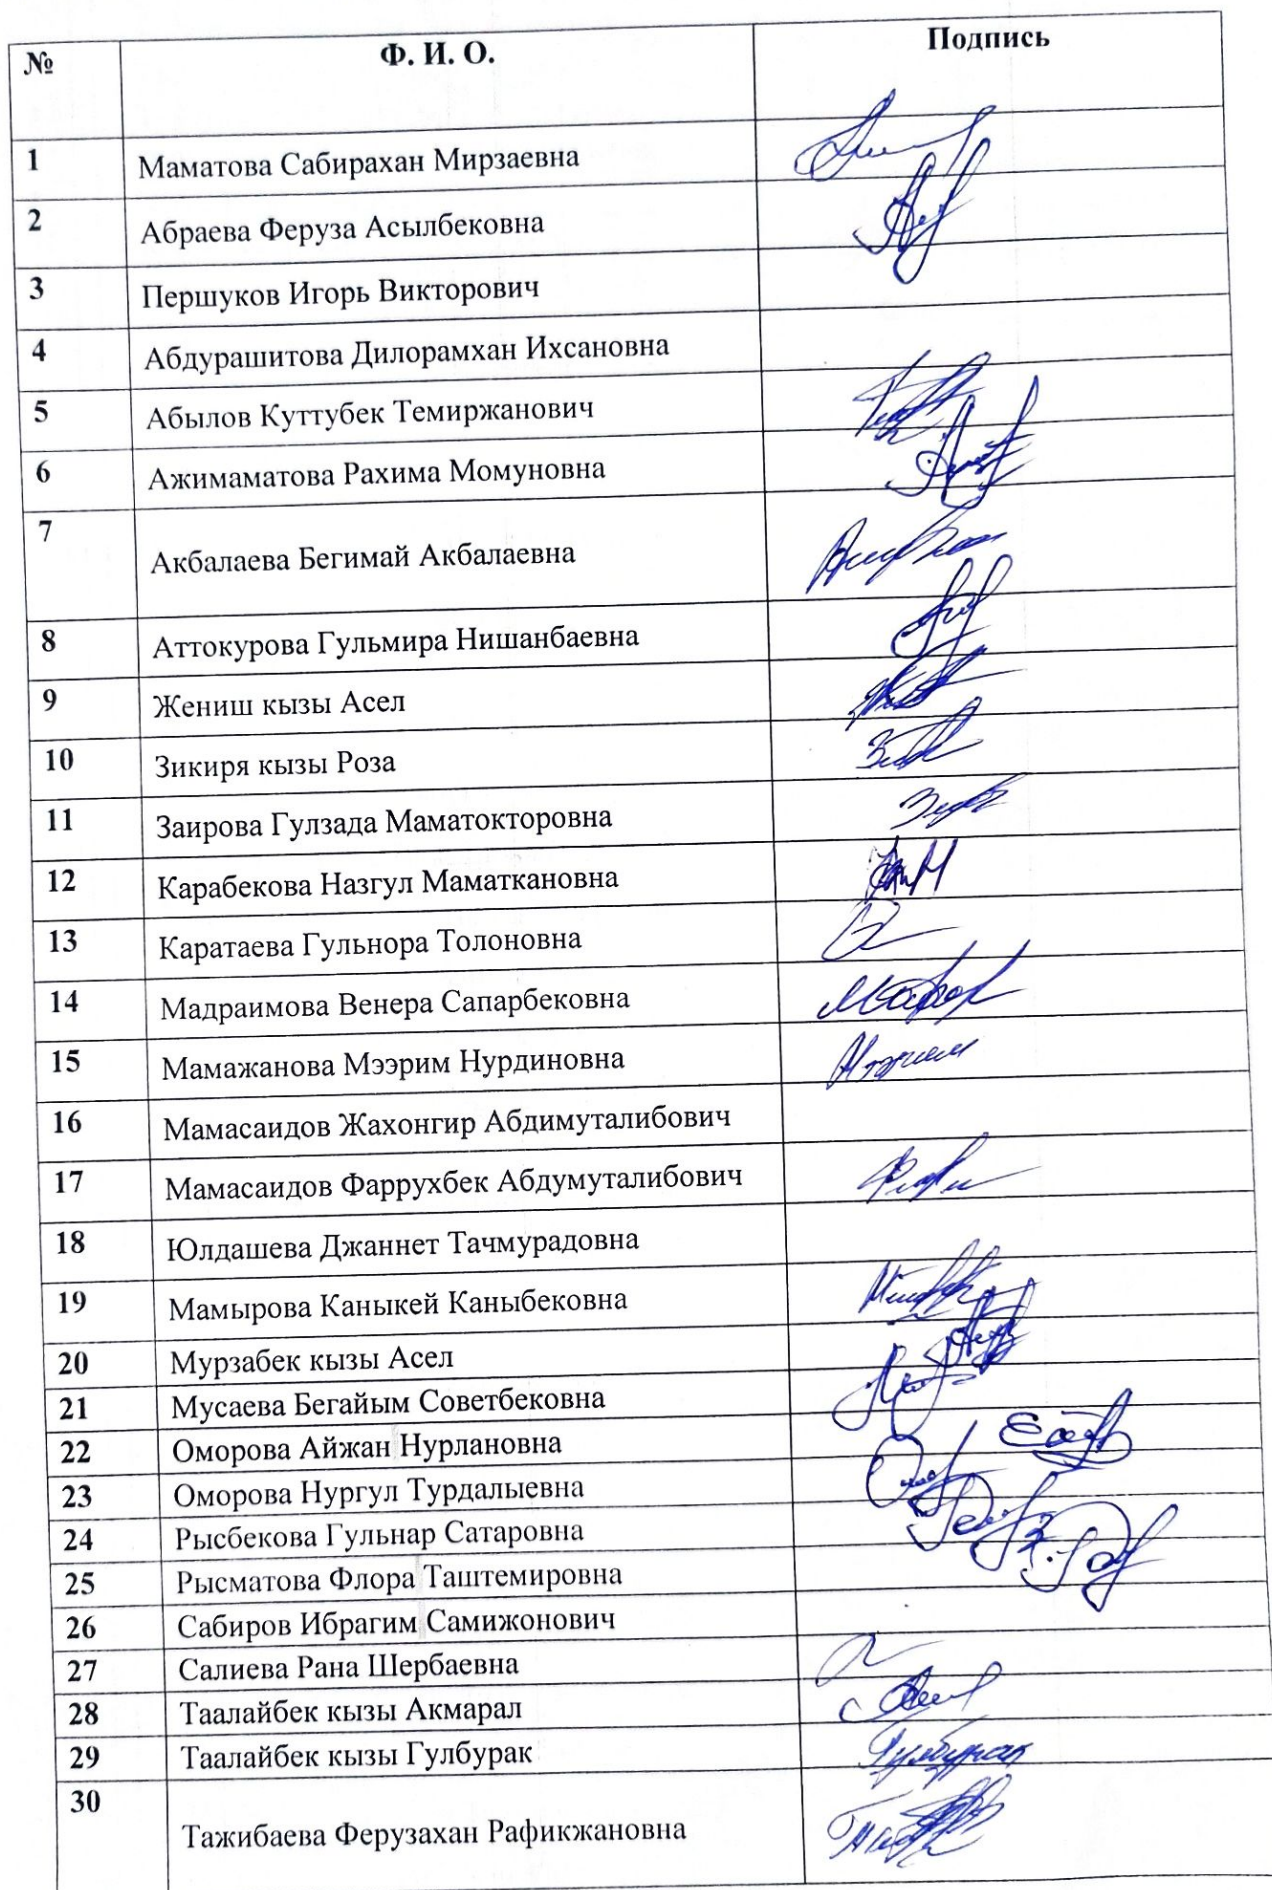 № Ф. И. О. Подпись
1 Маматова Сабирахан Мирзаевна
2 Абраева Феруза Асылбековна
3 Першуков Игорь Викторович
4 Абдурашитова Дилорамхан Ихсановна
5 Абылов Куттубек Темиржанович
6 Ажимаматова Рахима Момуновна
7 Акбалаева Бегимай Акбалаевна
8 Аттокурова Гульмира Нишанбаевна
9 Жениш кызы Асел
10 Зикиря кызы Роза
11 Заирова Гулзада Маматокторовна
12 Карабекова Назгул Маматкановна
13 Каратаева Гульнора Толоновна
14 Мадраимова Венера Сапарбековна
15 Мамажанова Мээрим Нурдиновна
16 Мамасаидов Жахонгир Абдимуталибович
17 Мамасаидов Фаррухбек Абдумуталибович
18 Юлдашева Джаннет Тачмурадовна
19 Мамырова Каныкей Каныбековна
20 Мурзабек кызы Асел
21 Мусаева Бегайым Советбековна
22 Оморова Айжан Нурлановна
23 Оморова Нургул Турдалыевна
24 Рысбекова Гульнар Сатаровна
25 Рысматова Флора Таштемировна
26 Сабиров Ибрагим Самижонович
27 Салиева Рана Шербаевна
28 Таалайбек кызы Акмарал
29 Таалайбек кызы Гулбурак
30 Тажибаева Ферузахан Рафикжановна